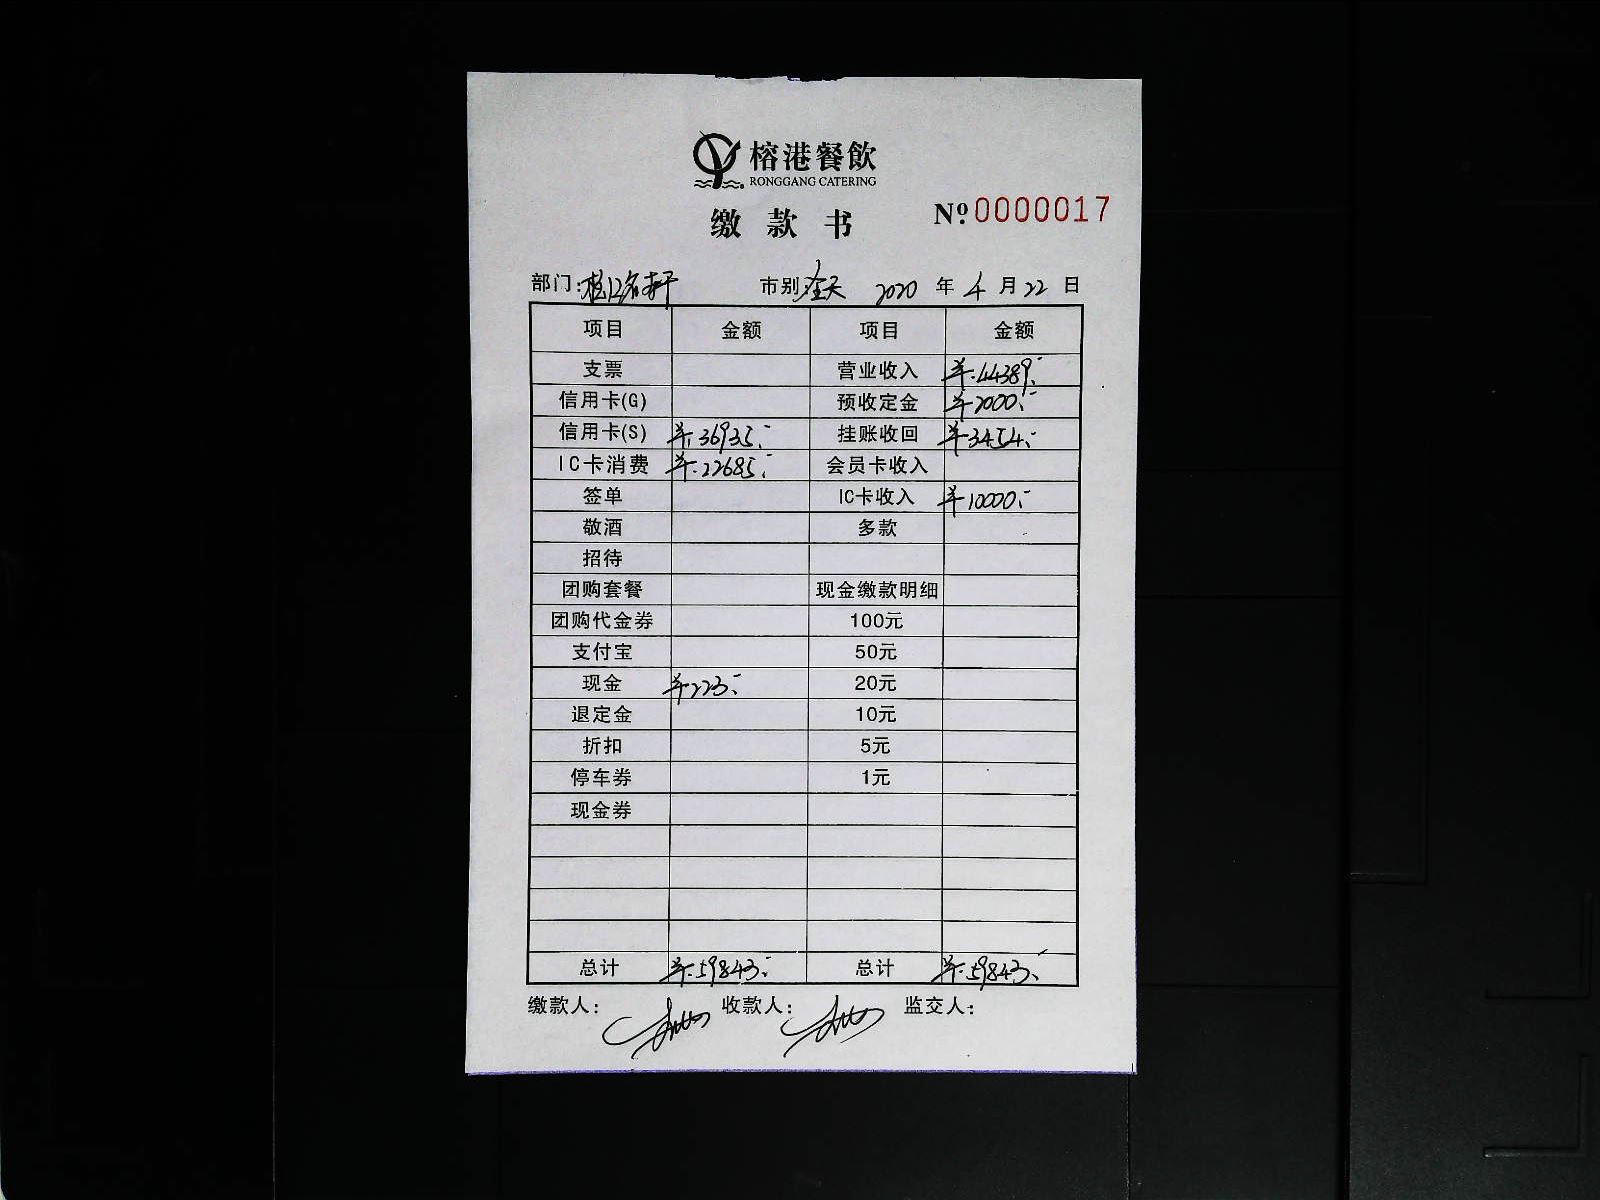 榕港餐飲
RONGGANG CATERING
缴款书
№0000017
部门: 市别:全天 2020 年 4 月 22 日
项目 金额 项目 金额
支票 营业收入 ¥44389.-
信用卡(G) 预收定金 ¥2000.-
信用卡(S) ¥36935.- 挂账收回 ¥3454.-
IC卡消费 ¥22685.- 会员卡收入
签单 IC卡收入 ¥10000.-
敬酒 多款
招待
团购套餐 现金缴款明细
团购代金券 100元
支付宝 50元
现金 ¥223.- 20元
退定金 10元
折扣 5元
停车券 1元
现金券
总计 ¥59843.- 总计 ¥59843.-
缴款人: 收款人: 监交人: